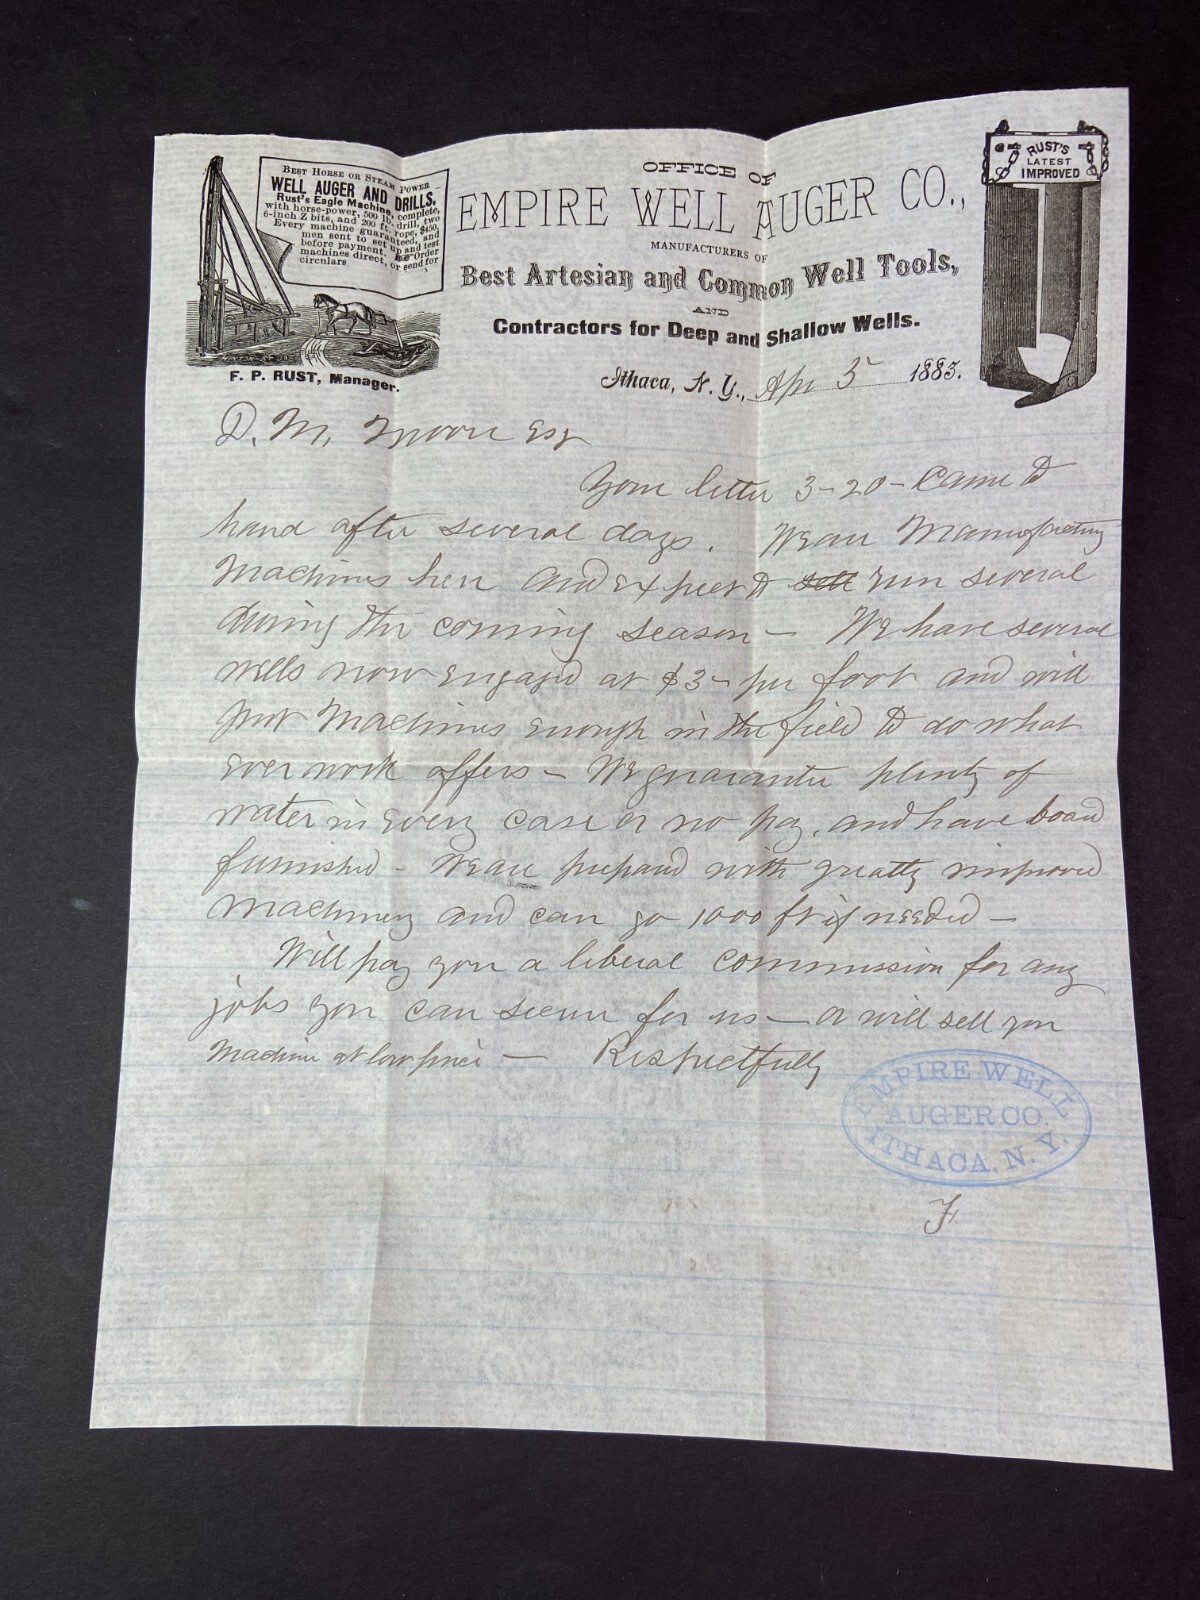 BEST HORSE OR STEAM POWER
WELL AUGER AND DRILLS.
Rust's Eagle Machine, complete,
with horse-power, 500 lb. drill, two
6-inch Z bits, and 200 ft. rope, $450.
Every machine guaranteed, and
men sent to set up and test
before payment. Order
machines direct, or send for
circulars
F. P. RUST, Manager.
OFFICE OF
EMPIRE WELL AUGER CO.,
MANUFACTURERS OF
Best Artesian and Common Well Tools,
AND
Contractors for Deep and Shallow Wells.
RUST'S
LATEST
IMPROVED
Ithaca, N. Y., Apr 5 1883.
D. M. Moore Esq
Your letter 3-20- Came to
hand after several days. We are Manufacturing
Machines here and expect to sell run several
during the coming season - We have several
wells now engaged at $3- per foot and will
put Machines enough in the field to do what
ever work offers - We guarantee plenty of
water in every case or no pay, and have board
furnished - We are prepared with greatly improved
Machinery and can go 1000 ft if needed -
Will pay you a liberal commission for any
jobs you can secure for us - or will sell you
Machine at low price - Respectfully
EMPIRE WELL
AUGER CO.
ITHACA, N. Y.
F